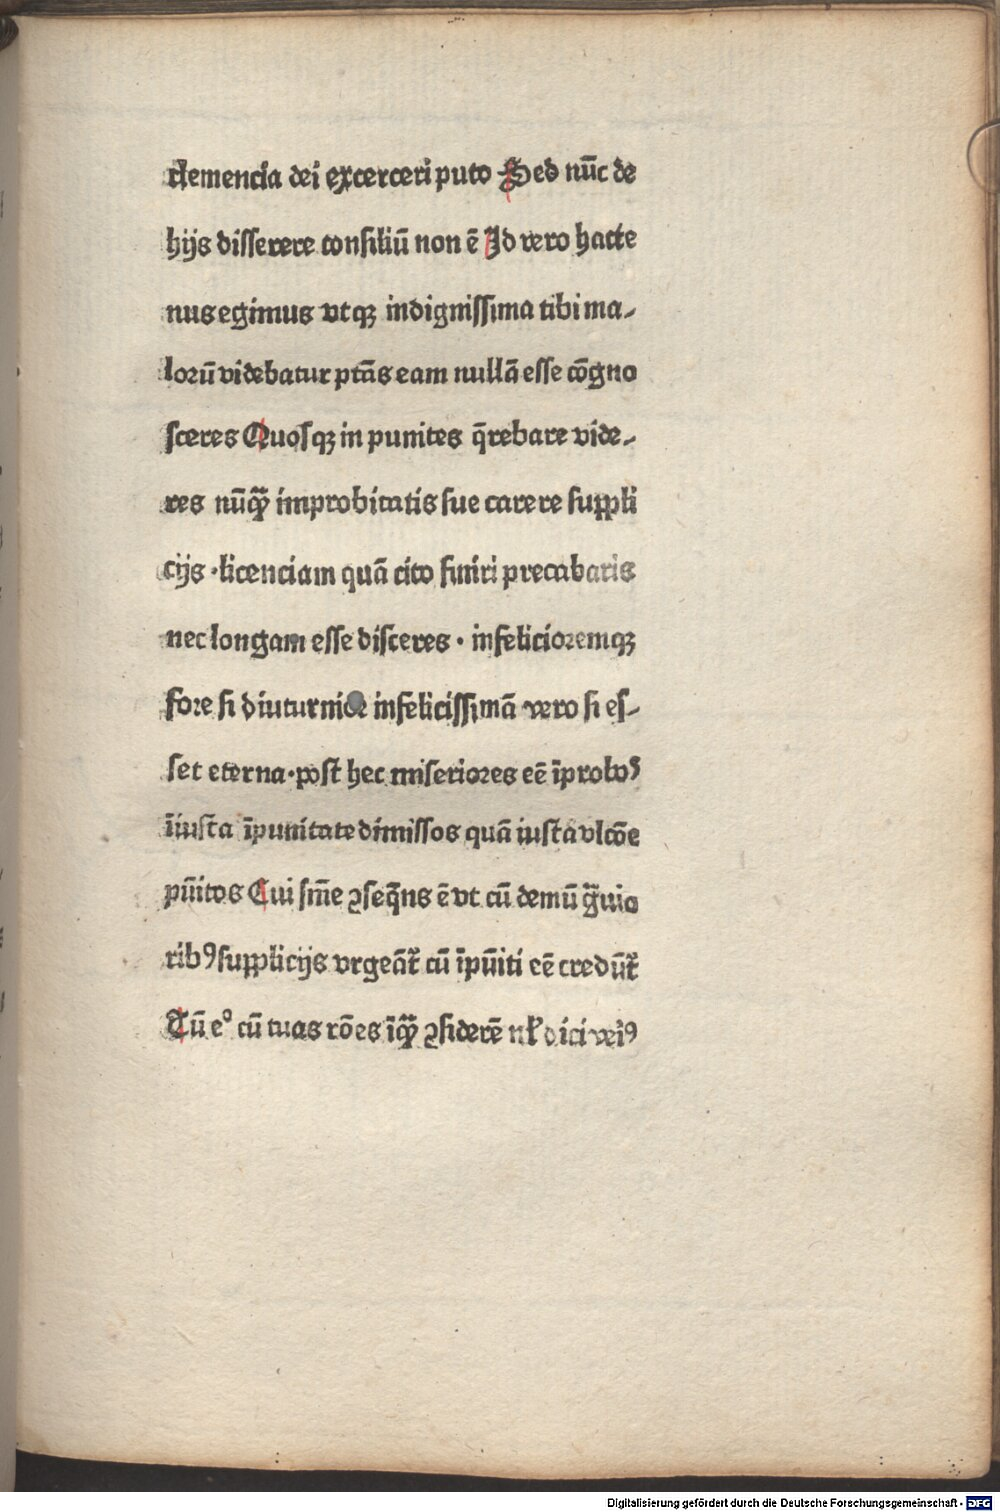 clemencia dei excerceri puto Sed nūc de
hijs disserere consiliū non ē Id vero hacte
nus egimus vtqꝫ indignissima tibi ma⸗
lorū videbatur ptās eam nullā esse cōgno
sceres Quosqꝫ in punites q̄rebare vide⸗
res nūqꝫ̄ improbitatis sue carere suppli
cijs ·licenciam quā cito finiri precabaris
nec longam esse disceres · infelicioremqꝫ
fore si diuturnior infelicissimā vero si es⸗
set eterna·post hec miseriores eē īprobos
īiusta īpunitate dimissos quā iusta vlcōe
pūitos Cui sn̄ie ꝯseq̄ns ē vt cū demū ḡuio
ribꝰ supplicijs vrgeāt᷑ cū īpūiti eē credūt᷑
Tū eº cū tuas rōes īqꝫ̄ ꝯsiderē nł dici veriꝰ
Digitalisierung gefördert durch die Deutsche Forschungsgemeinschaft - DFG